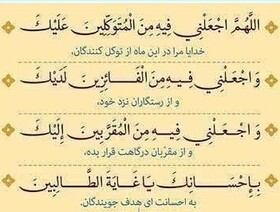 اللَّهُمَّ اجْعَلْنِي فِيهِ مِنَ الْمُتَوَكِّلِينَ عَلَيْكَ
خدایا مرا در این ماه از توکل کنندگان،
وَ اجْعَلْنِي فِيهِ مِنَ الْفَائِزِينَ لَدَيْكَ
و از رستگاران نزد خود،
وَ اجْعَلْنِي فِيهِ مِنَ الْمُقَرَّبِينَ إِلَيْكَ
و از مقرّبان درگاهت قرار بده،
بِإِحْسَانِكَ يَا غَايَةَ الطَّالِبِينَ
به احسانت ای هدف جویندگان.